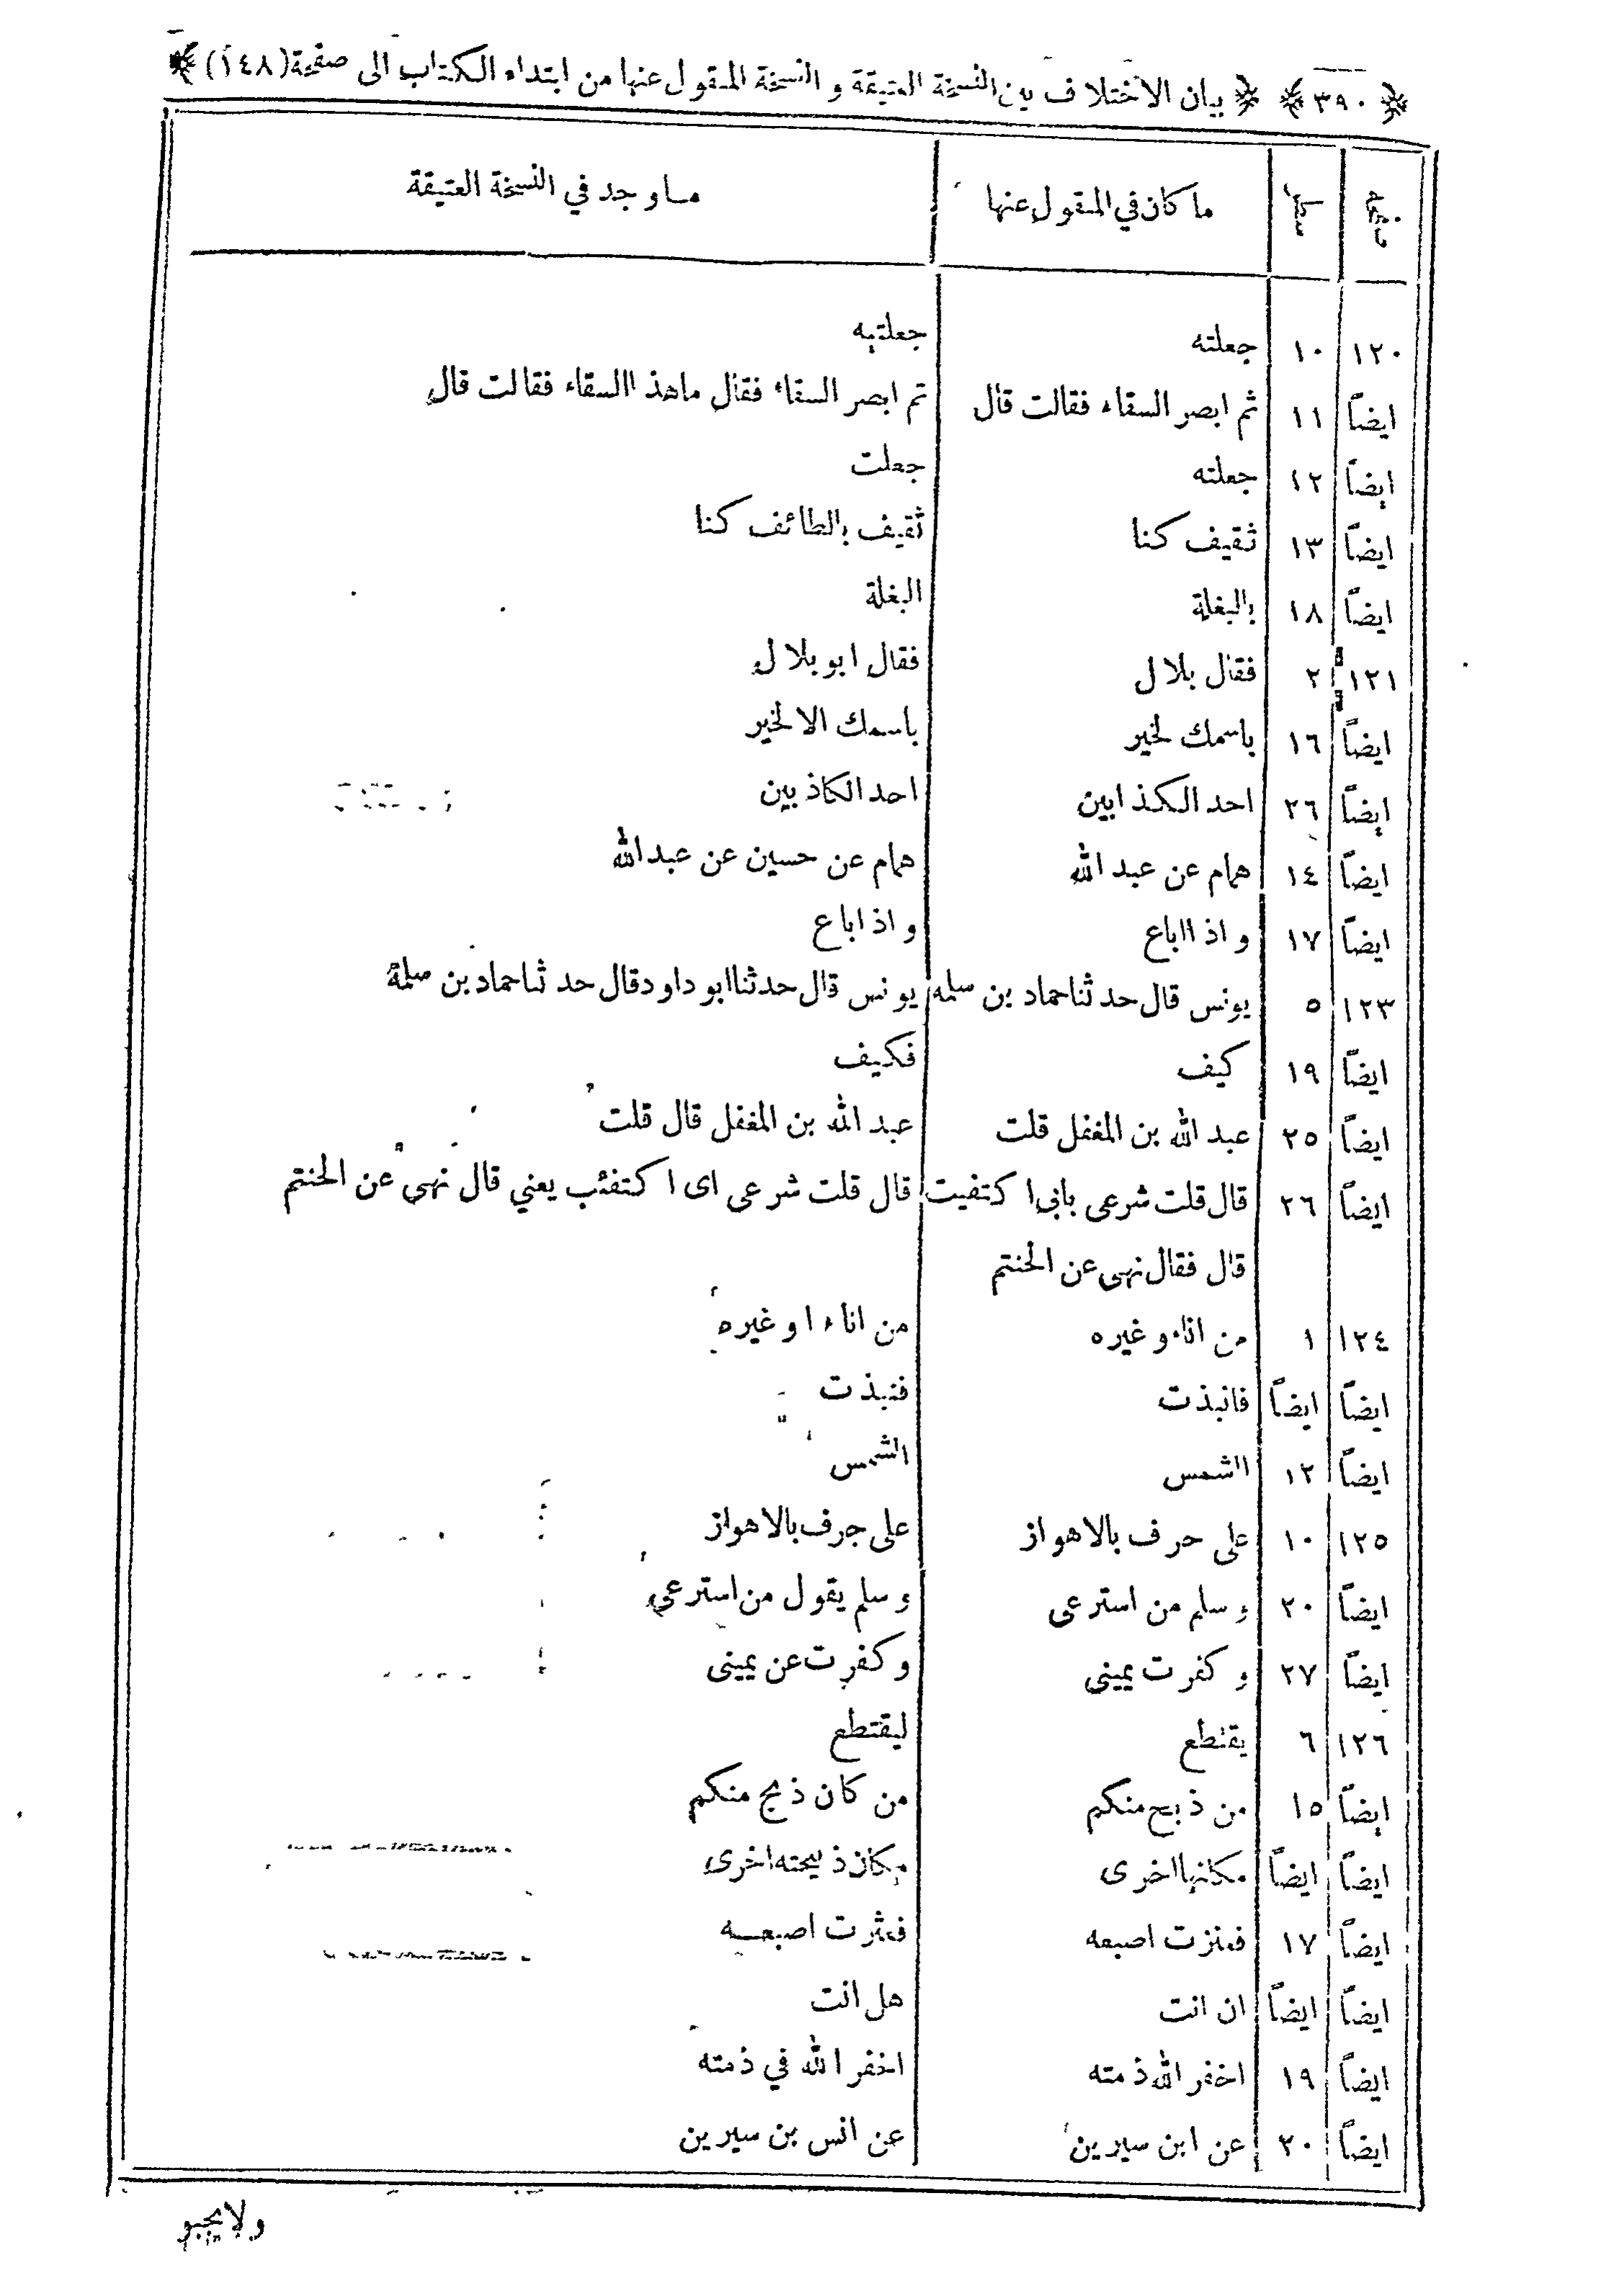 ﴿٣٩٠﴾ ﴿بيان الاختلاف بين النسخة العتيقة و النسخة المنقول عنها من ابتداء الكتاب الى صفحة (١٤٨)﴾
صفحه سطر ما كان في المنقول عنها ما وجد في النسخة العتيقة
١٢٠ ١٠ جعلته جعلتيه
ايضاً ١١ ثم ابصر السقاء فقالت قال ثم ابصر السقاء فقال ماهذ االسقاء فقالت قال
ايضاً ١٢ جعلته جعلت
ايضاً ١٣ ثقيف كنا ثقيف بالطائف كنا
ايضاً ١٨ بالبغلة البغلة
١٢١ ٢ فقال بلال فقال ابو بلال
ايضاً ١٦ باسمك لخير باسمك الا لخير
ايضاً ٢٦ احد الكذ ابين احد الكاذ بين
ايضاً ١٤ همام عن عبد الله همام عن حسين عن عبد الله
ايضاً ١٧ و اذ ااباع و اذ اباع
١٢٣ ٥ يونس قال حد ثنا حماد بن سلمه يونس قال حدثنا ابو داود قال حد ثنا حماد بن سلمة
ايضاً ١٩ كيف فكيف
ايضاً ٢٥ عبد الله بن المغفل قلت عبد الله بن المغفل قال قلت
ايضاً ٢٦ قال قلت شرعى بانى ا كتفيت قال قلت شرعى اى ا كتفئب يعني قال نهى عن الحنتم
قال فقال نهى عن الحنتم
١٢٤ ١ من اناء و غيره من اناء ا و غيره
ايضاً ايضاً فانبذت فنبذت
ايضاً ١٢ ااشمس الشمس
١٢٥ ١٠ على حرف بالاهواز على جرف بالاهواز
ايضاً ٢٠ و سلم من استرعى و سلم يقول من استرعى
ايضاً ٢٧ و كفرت يمينى و كفرت عن يمينى
١٢٦ ٦ يقتطع ليقتطع
ايضاً ١٥ من ذبح منكم من كان ذبح منكم
ايضاً ايضاً مكانها اخرى مكان ذبيحته اخرى
ايضاً ١٧ فعنزت اصبعه فعثرت اصبعـــه
ايضاً ايضاً ان انت هل انت
ايضاً ١٩ اخفر الله ذمته اخفر الله في ذمته
ايضاً ٢٠ عن ابن سيرين عن انس بن سيرين